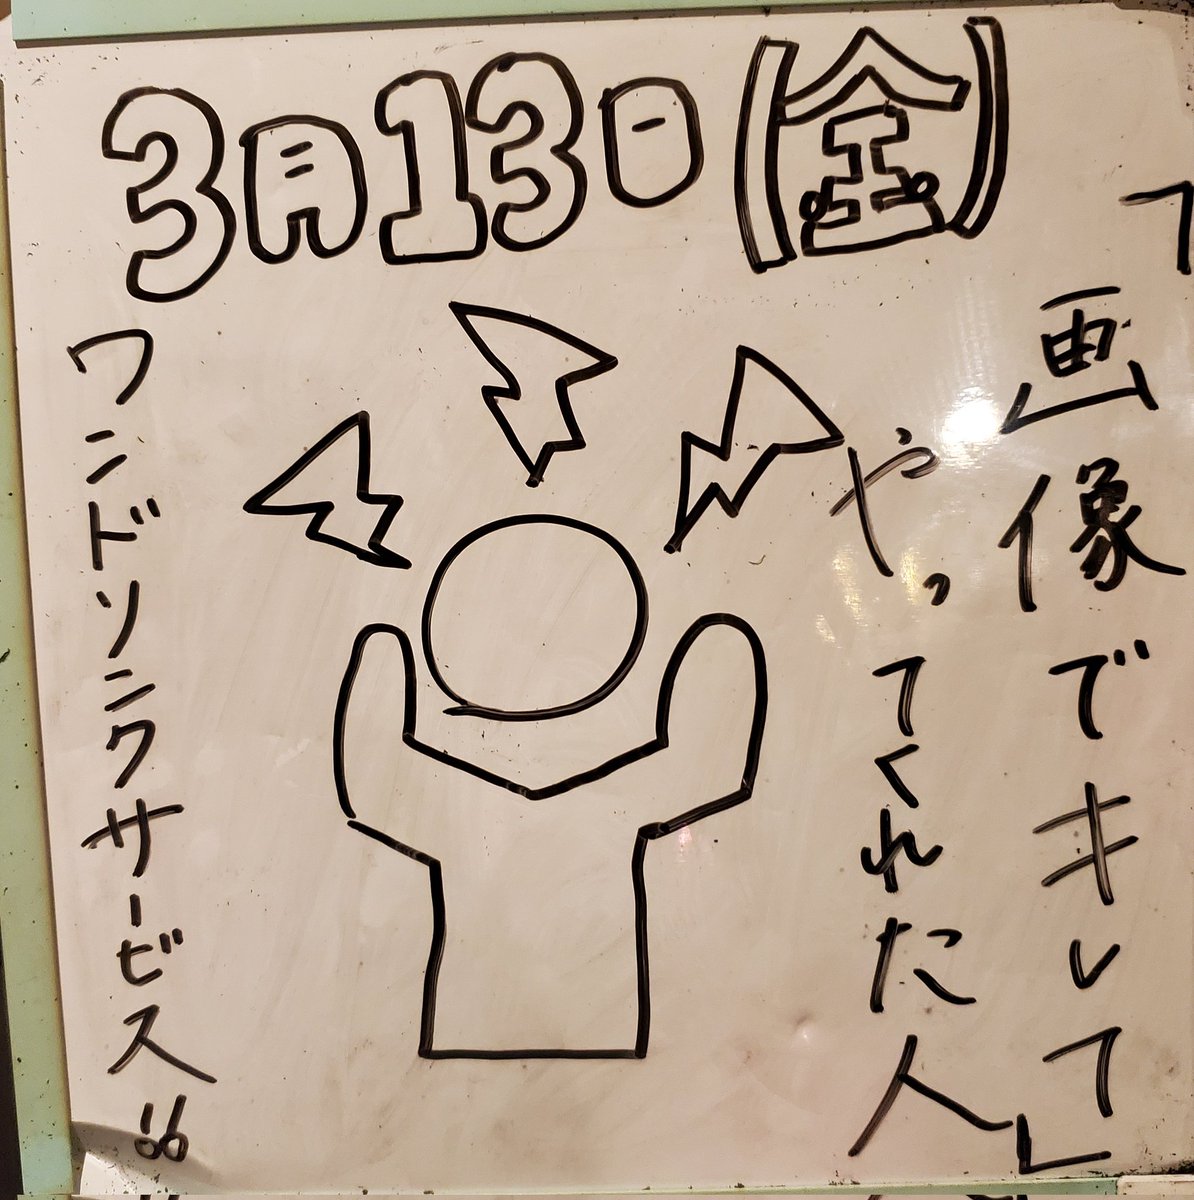 3月13日(金)
「画像でキレて」
やってくれた人
ワンドリンクサービス!!